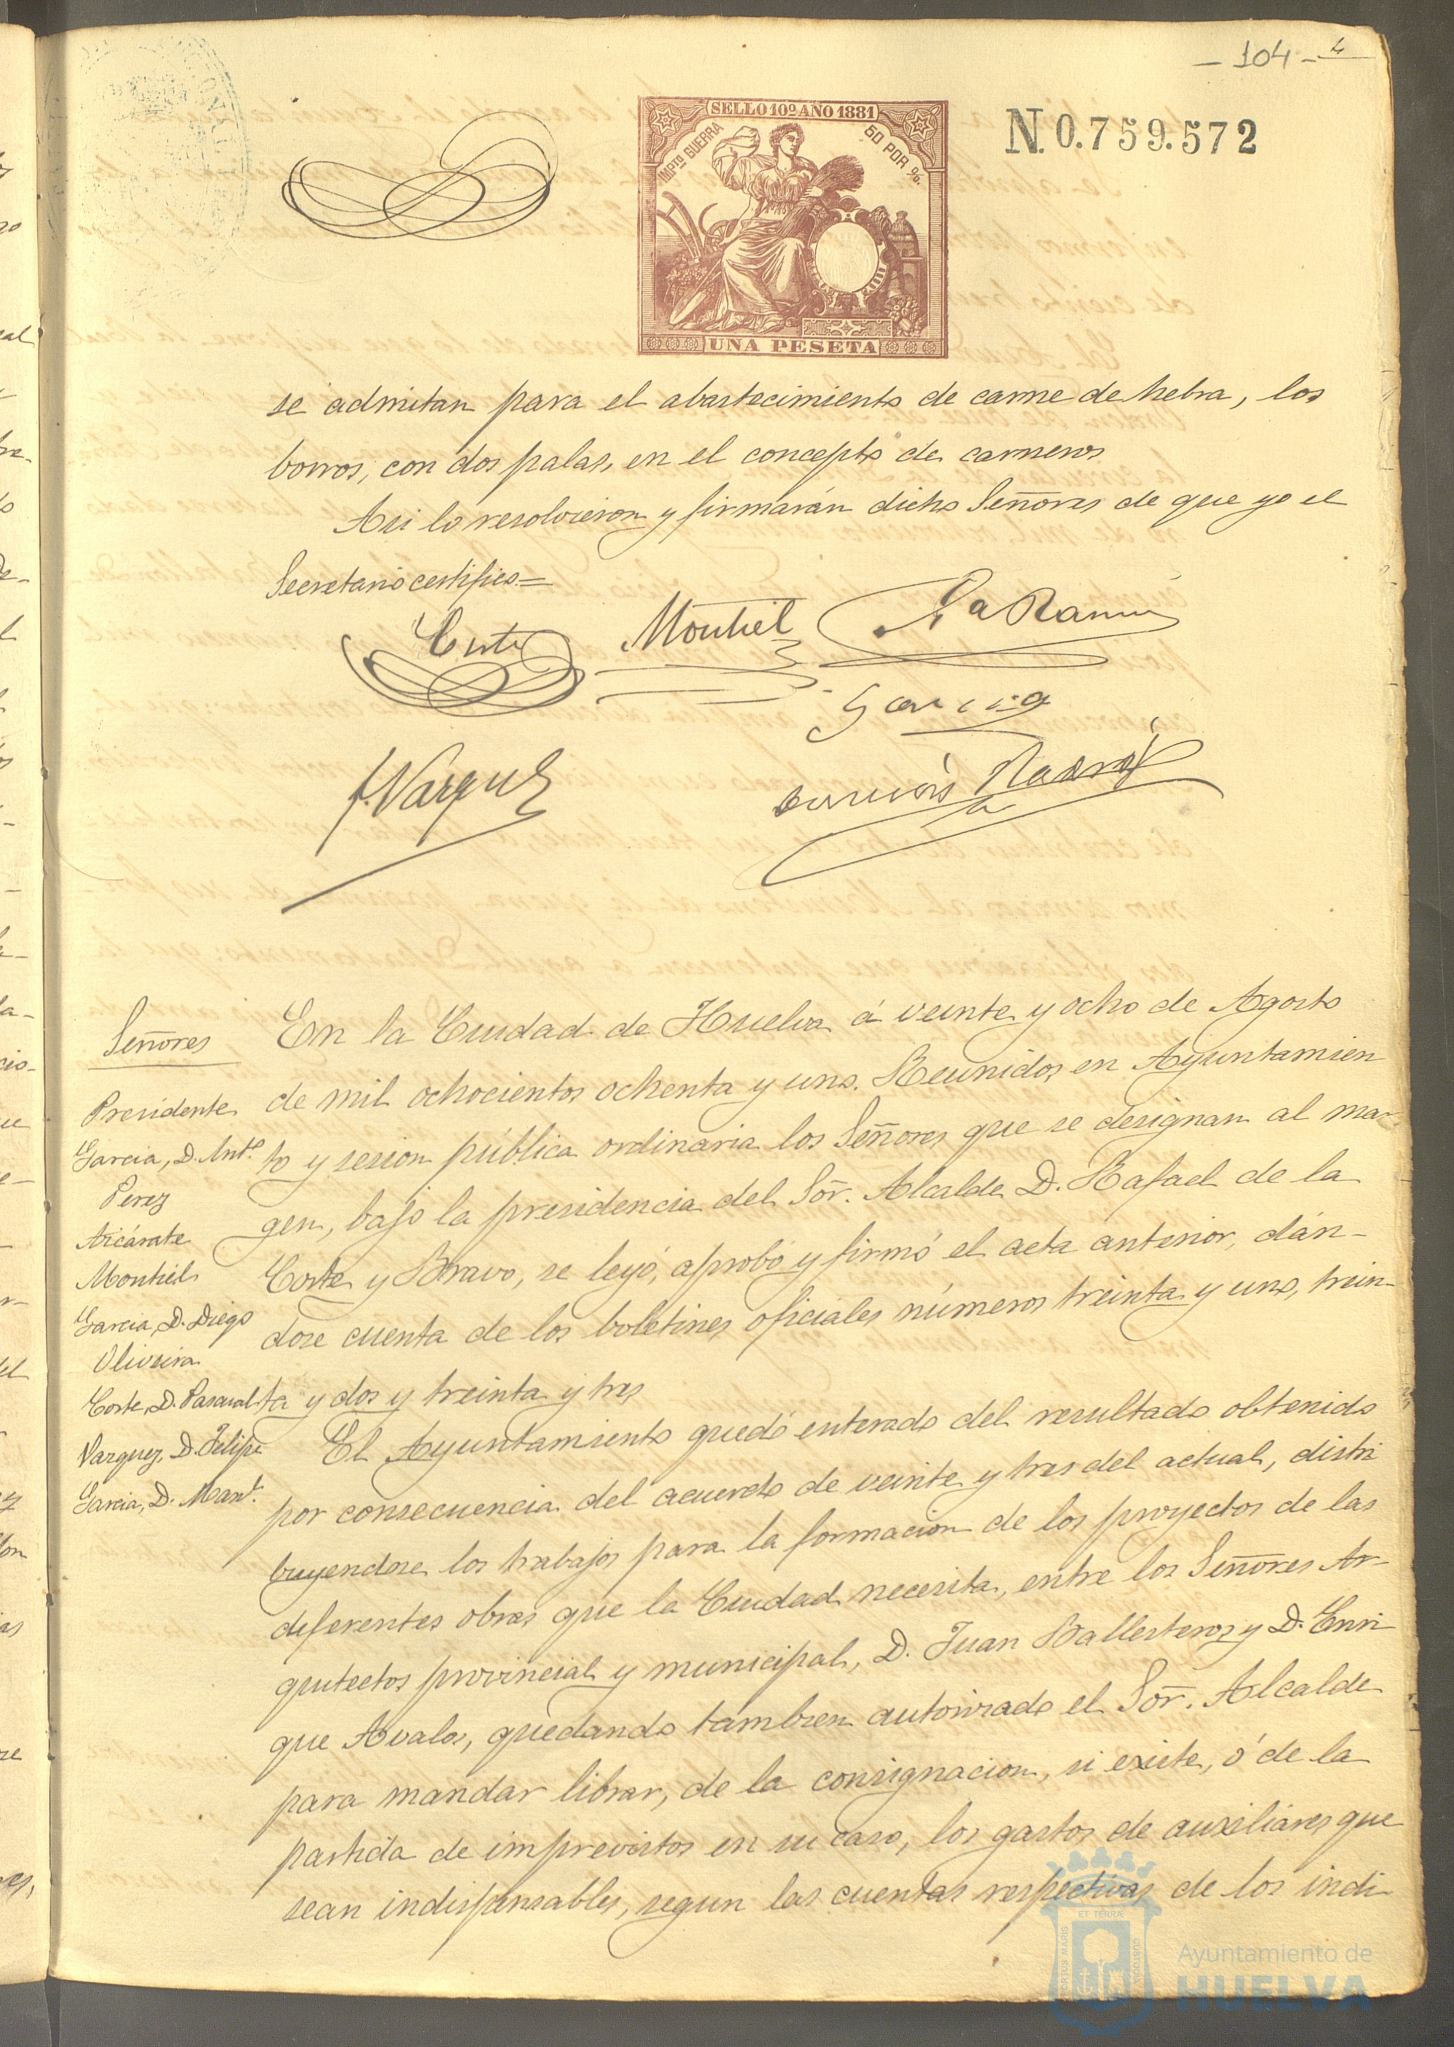 - 104 - 4
SELLO 10º AÑO 1881
IMPTO GUERRA
50 POR %.
N. 0.759.572
UNA PESETA
se admitan para el abastecimiento de carne de hebra, los
borros, con dos palas, en el concepto de carneros
Asi lo resolvieron y firmarán dichos Señores de que yo el
Secretario certifico=
Corte
Montiel
García
F. Vazquez
Señores
Presidente
Garcia, D. Antº
Perez
Azcárate
Montiel
Garcia, D. Diego
Oliveira
Corte, D. Pascual
Vazquez, D. Felipe
Garcia, D. Manl.
En la Ciudad de Huelva á veinte y ocho de Agosto
de mil ochocientos ochenta y uno. Reunidos en Ayuntamien
to y sesion pública ordinaria los Señores que se designan al mar-
gen, bajo la presidencia del Sor. Alcalde D. Rafael de la
Corte y Bravo, se leyó, aprobó y firmó el acta anterior, dán-
dose cuenta de los boletines oficiales números treinta y uno, trein-
ta y dos y treinta y tres
El Ayuntamiento quedó enterado del resultado obtenido
por consecuencia del acuerdo de veinte y tres del actual, distri
buyendose los trabajos para la formacion de los proyectos de las
diferentes obras que la Ciudad necesita, entre los Señores Ar-
quitectos provincial y municipal, D. Juan Ballesteros y D. Enri
que Avalos, quedando tambien autorizado el Sor. Alcalde
para mandar librar, de la consignacion, si existe, ó de la
partida de imprevistos en su caso, los gastos de auxiliares que
sean indispensables, segun las cuentas respectivas de los indi
Ayuntamiento de
HUELVA